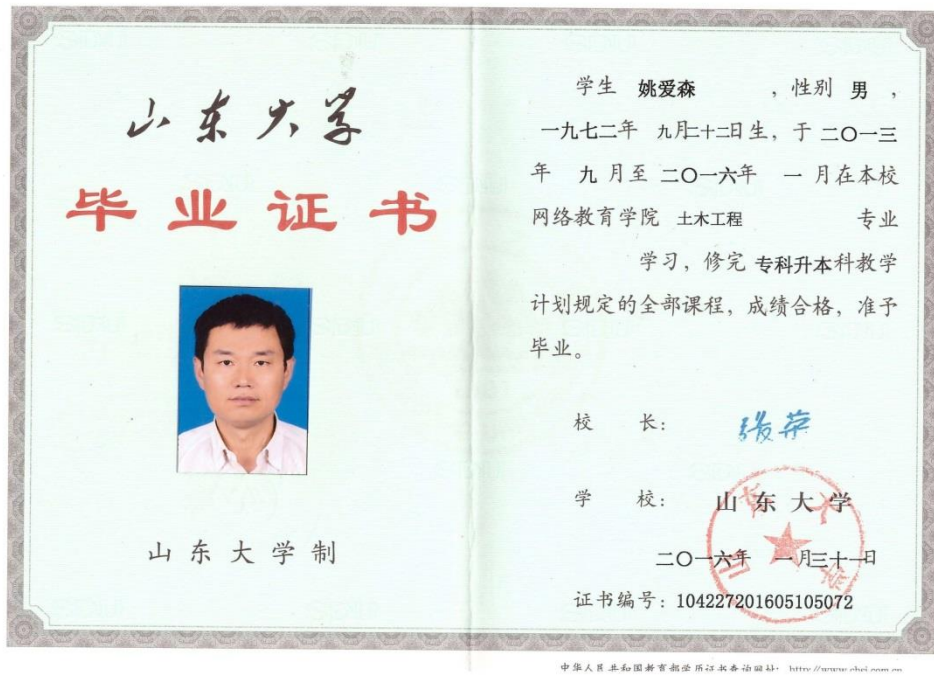 山东大学
毕业证书
山东大学制
学生 姚爱森 ，性别 男 ，
一九七二年 九月二十二日生，于 二〇一三
年 九 月至 二〇一六年 一 月在本校
网络教育学院 土木工程 专业
学习，修完 专科升本科教学
计划规定的全部课程，成绩合格，准予
毕业。
校 长：
学 校： 山东大学
二〇一六年 一月三十一日
证书编号：104227201605105072
山东大学
中华人民共和国教育部学历证书查询网址： http://www.chsi.com.cn